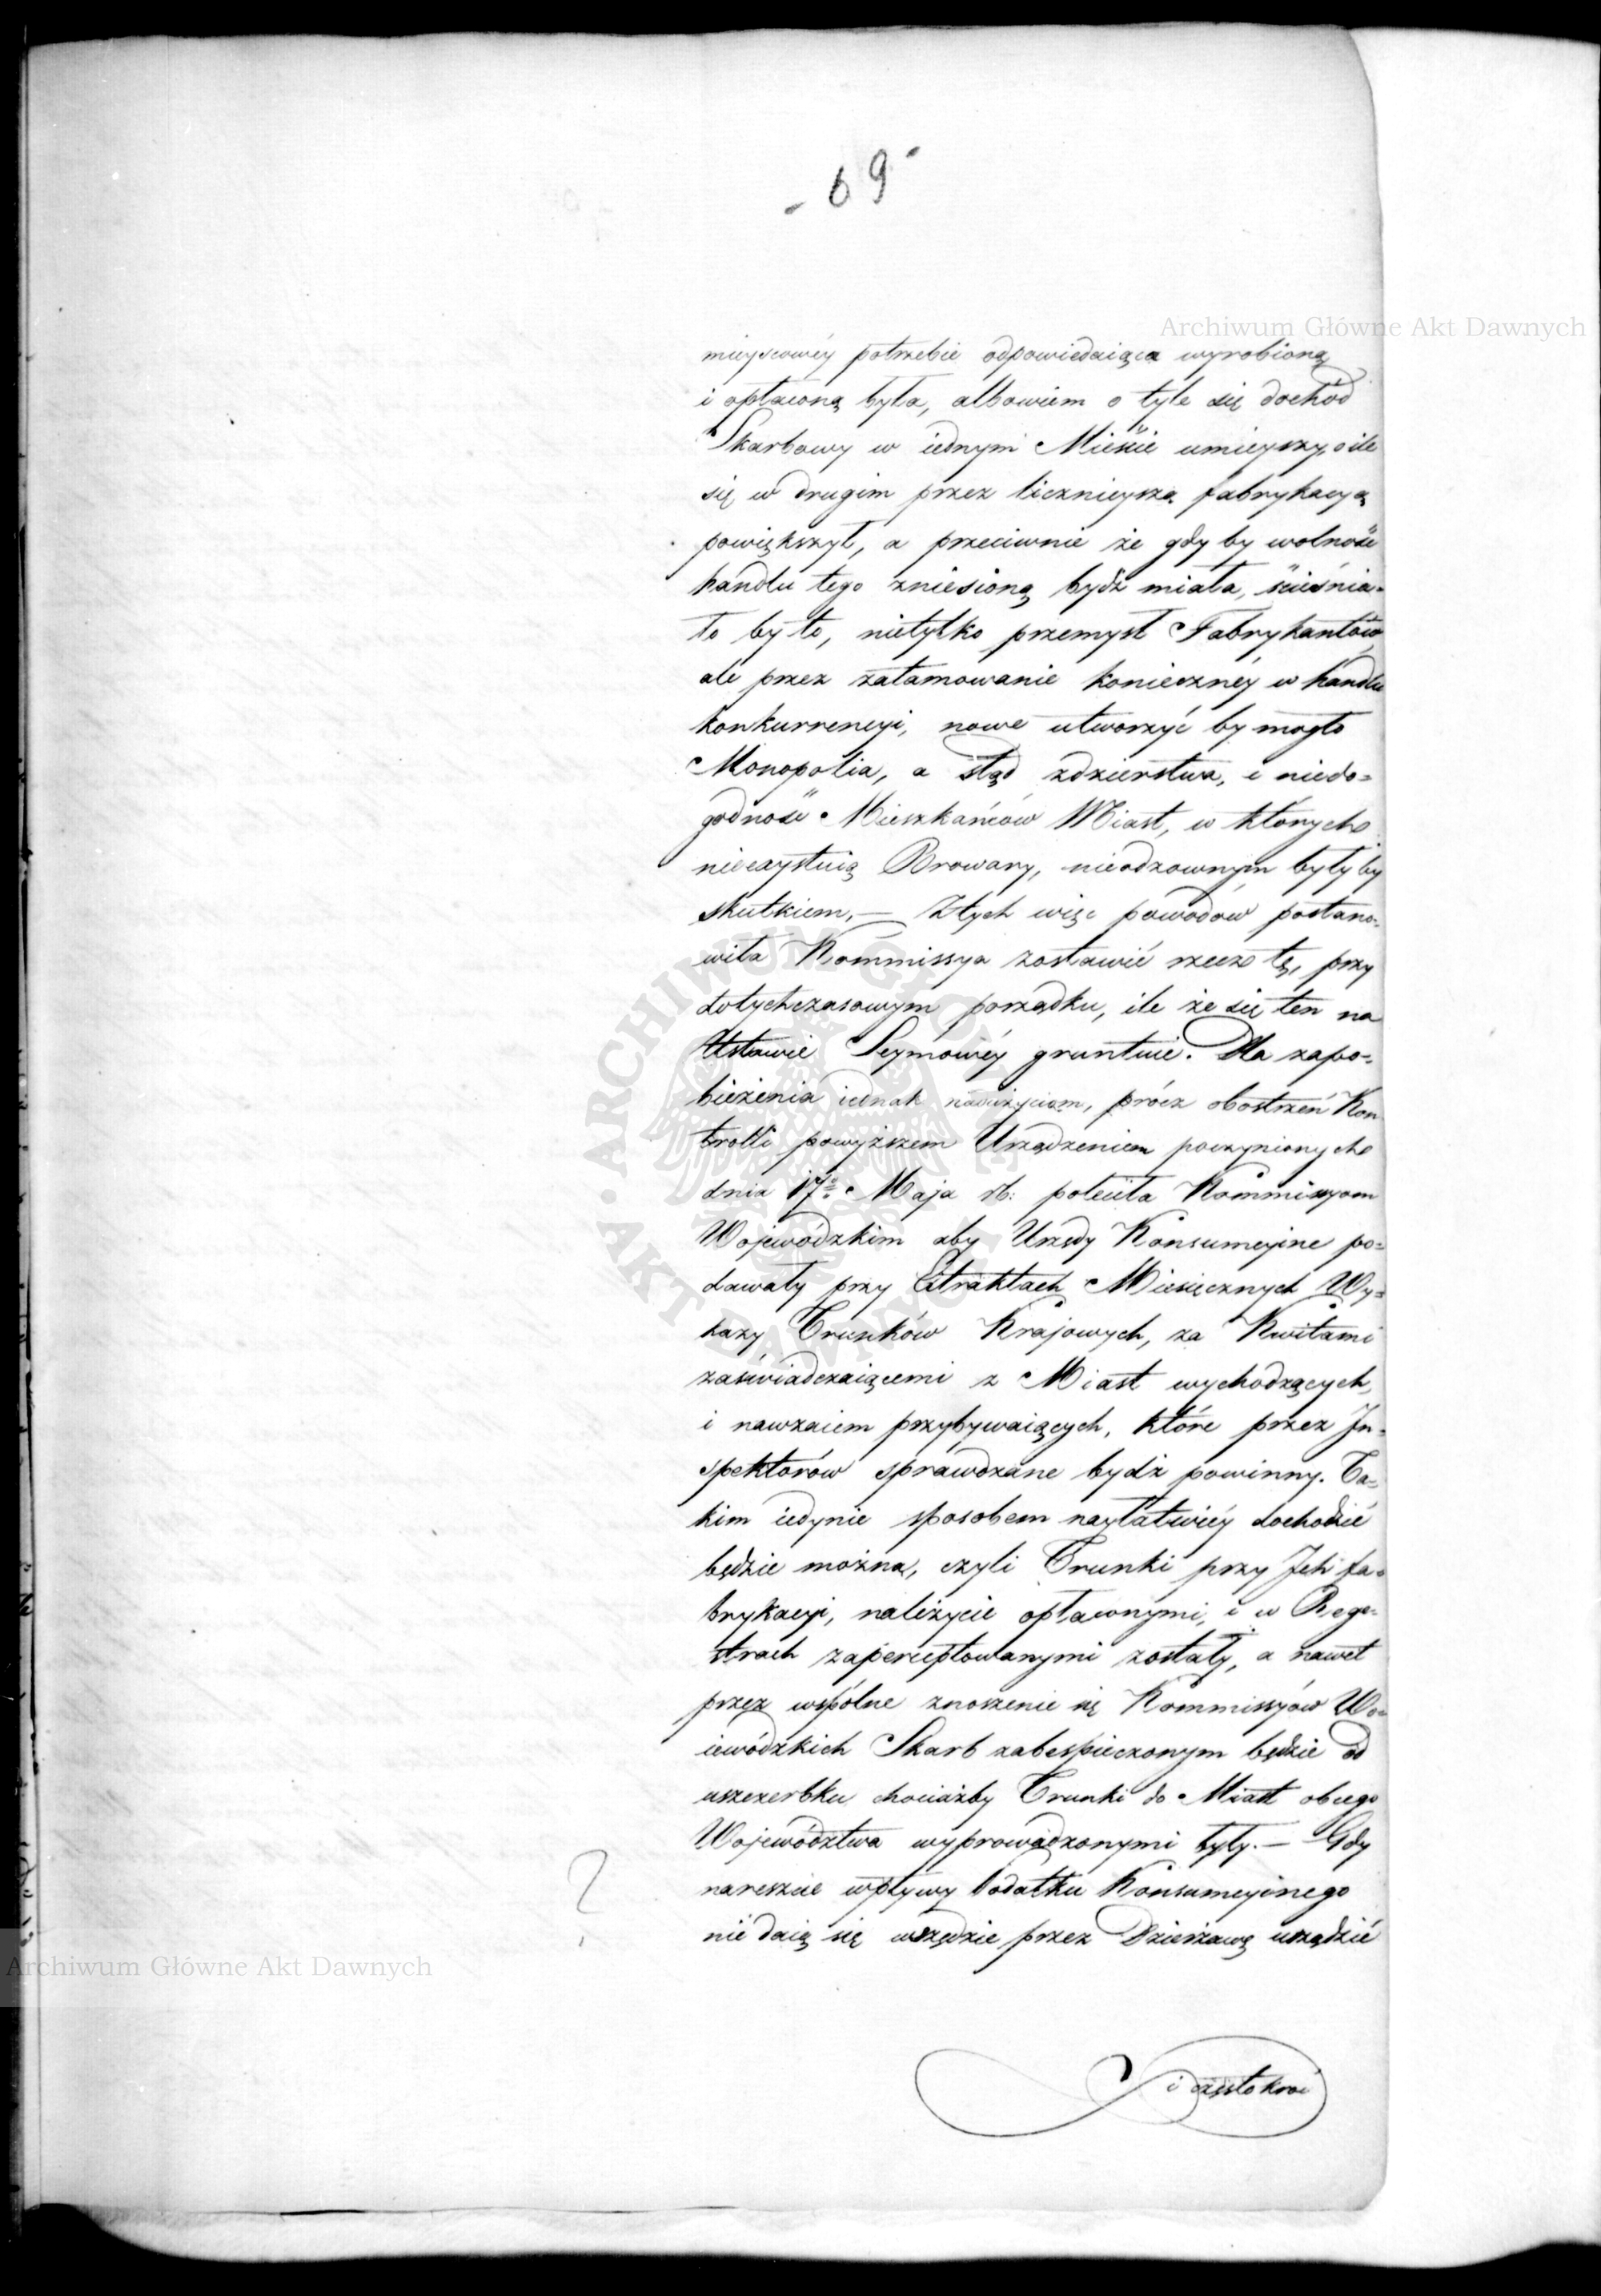 - 69 -
Archiwum Główne Akt Dawnych
mieyscowéy potrzebie odpowiedaiąca wyrobioną
i opłaconą była, albowiem o tyle się dochód
Skarbowy w iednym Mieście umieyszy, o ile
się w drugim przez licznieyszą fabrykacyą
powiększył, a przeciwnie że gdy by wolność
handlu tego zniesioną bydź miała, ścieśnia-
ło by to, nietylko przemysł Fabrykantów
ale przez zatamowanie konieczney w handlu
konkurrencyi, nowe utworzyć by mogło
Monopolia, a stąd zdzierstwa, i niedo=
godność Mieszkańców Miast, w których
nieexystuią Browary, nieodzownym byłyby
skutkiem. — Z tych więc powodów postano-
wiła Kommissya zostawić rzecz tę, przy
dotychczasowym porządku, ile że się ten na
Ustawie Seymowéy gruntuie. Dla zapo=
bieżenia iednak nadużyciom, prócz obostrzeń Kon
trolli powyższem Urządzeniem poczynionych
dnia 17º Maja rb: poleciła Kommissyom
Wojewódzkim aby Urzędy Konsumcyine po=
dawały przy Extraktach Miesięcznych Wy=
kazy Trunków Krajowych, za Kwitami
zaświadczaiącemi z Miast wychodzących,
i nawzaiem przybywaiących, które przez In=
spektorów sprawdzane bydź powinny. Ta=
kim iedynie sposobem nayłatwiéy dochodzić
będzie można, czyli Trunki przy Jch fa=
brykacyi, należycie opłaconymi, i w Rege=
strach zapercepto­wanymi zostały, a nawet
przez wspólne znoszenie się Kommissyów Wo=
iewódzkich Skarb zabespieczonym będzie od
uszczerbku chociażby Trunki do Miast obcego
Województwa wyprowadzonymi były. — Gdy
nareszcie wpływy Podatku Konsumcyinego
nie daią się wszędzie przez Dzierżawę urządzić
?
Archiwum Główne Akt Dawnych
i częstokroć
ARCHIWUM GŁÓWNE AKT DAWNYCH